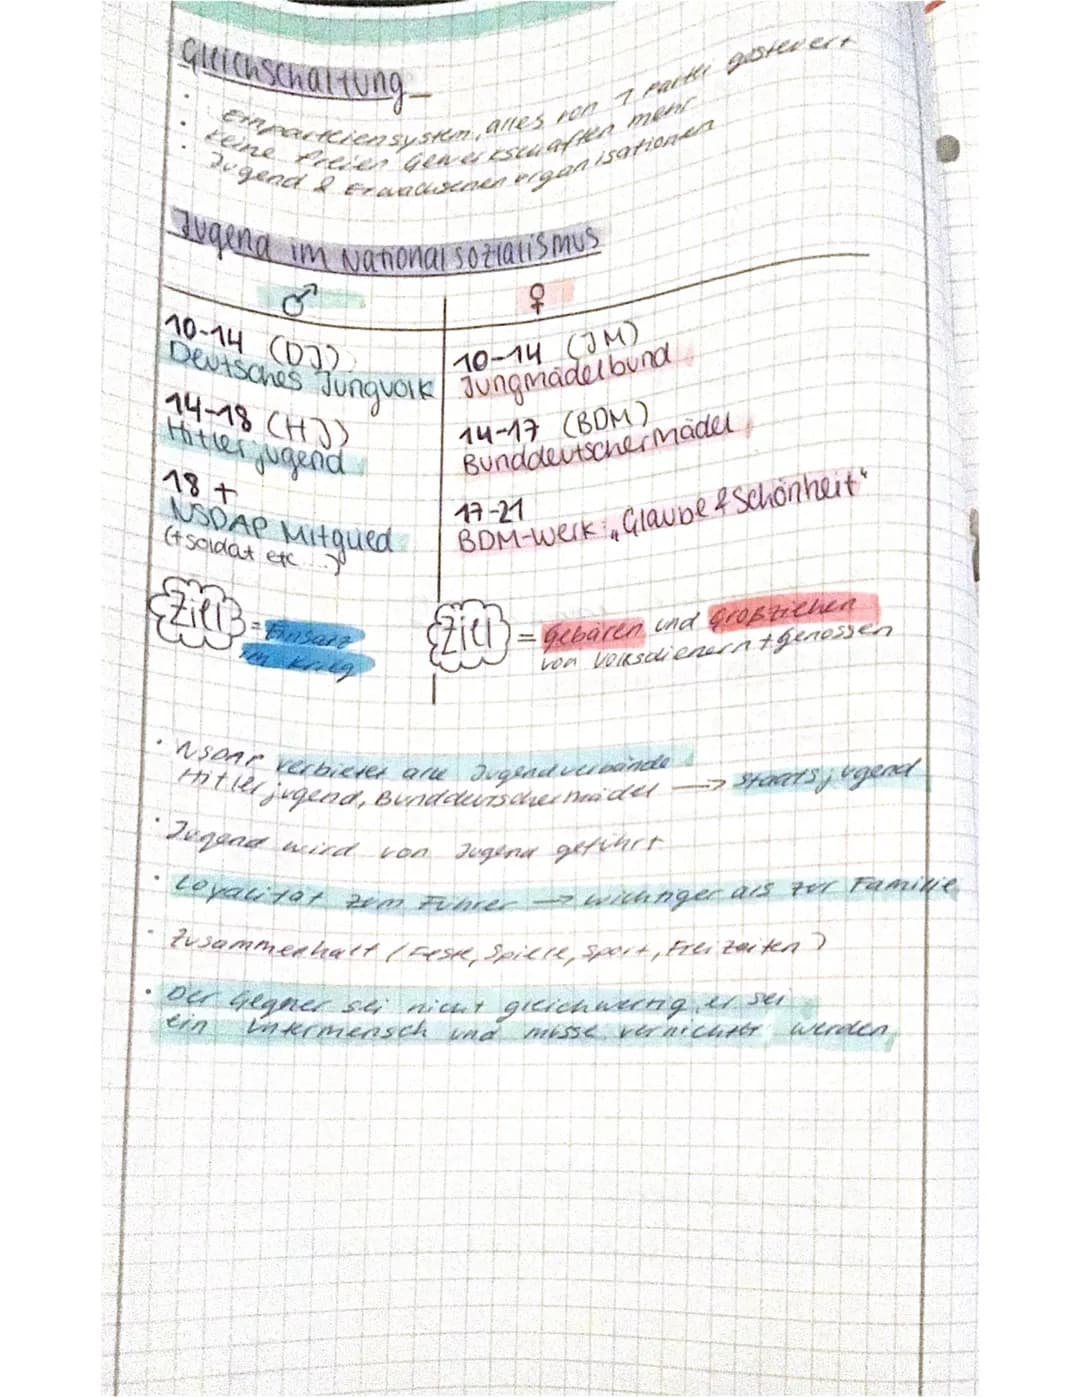 Gleichschaltung
· Einparteiensystem, alles von 1 Partei gesteuert
· keine freien Gewerkschaften mehr
· Jugend & Erwachsenenorganisationen
Jugend im Nationalsozialismus
♂ ♀
10-14 (DJ)
Deutsches Jungvolk
14-18 (HJ)
Hitlerjugend
18 +
NSDAP Mitglied
(+ soldat etc ...)
Ziel = Einsatz
im Krieg
10-14 (JM)
Jungmädelbund
14-17 (BDM)
Bunddeutschermädel
17-21
BDM-Werk: „Glaube & Schönheit"
Ziel = Gebären und Großziehen
von Volksdienern + Genossen
· NSDAP verbietet alle Jugendverbände
Hitlerjugend, Bunddeutschermädel → Staatsjugend
· Jugend wird von Jugend geführt
· Loyalität zum Führer → wichtiger als zur Familie
· Zusammenhalt (Feste, Spiele, Sport, Freizeiten)
· Der Gegner sei nicht gleichwertig, er sei
ein Untermensch und müsse vernichtet werden